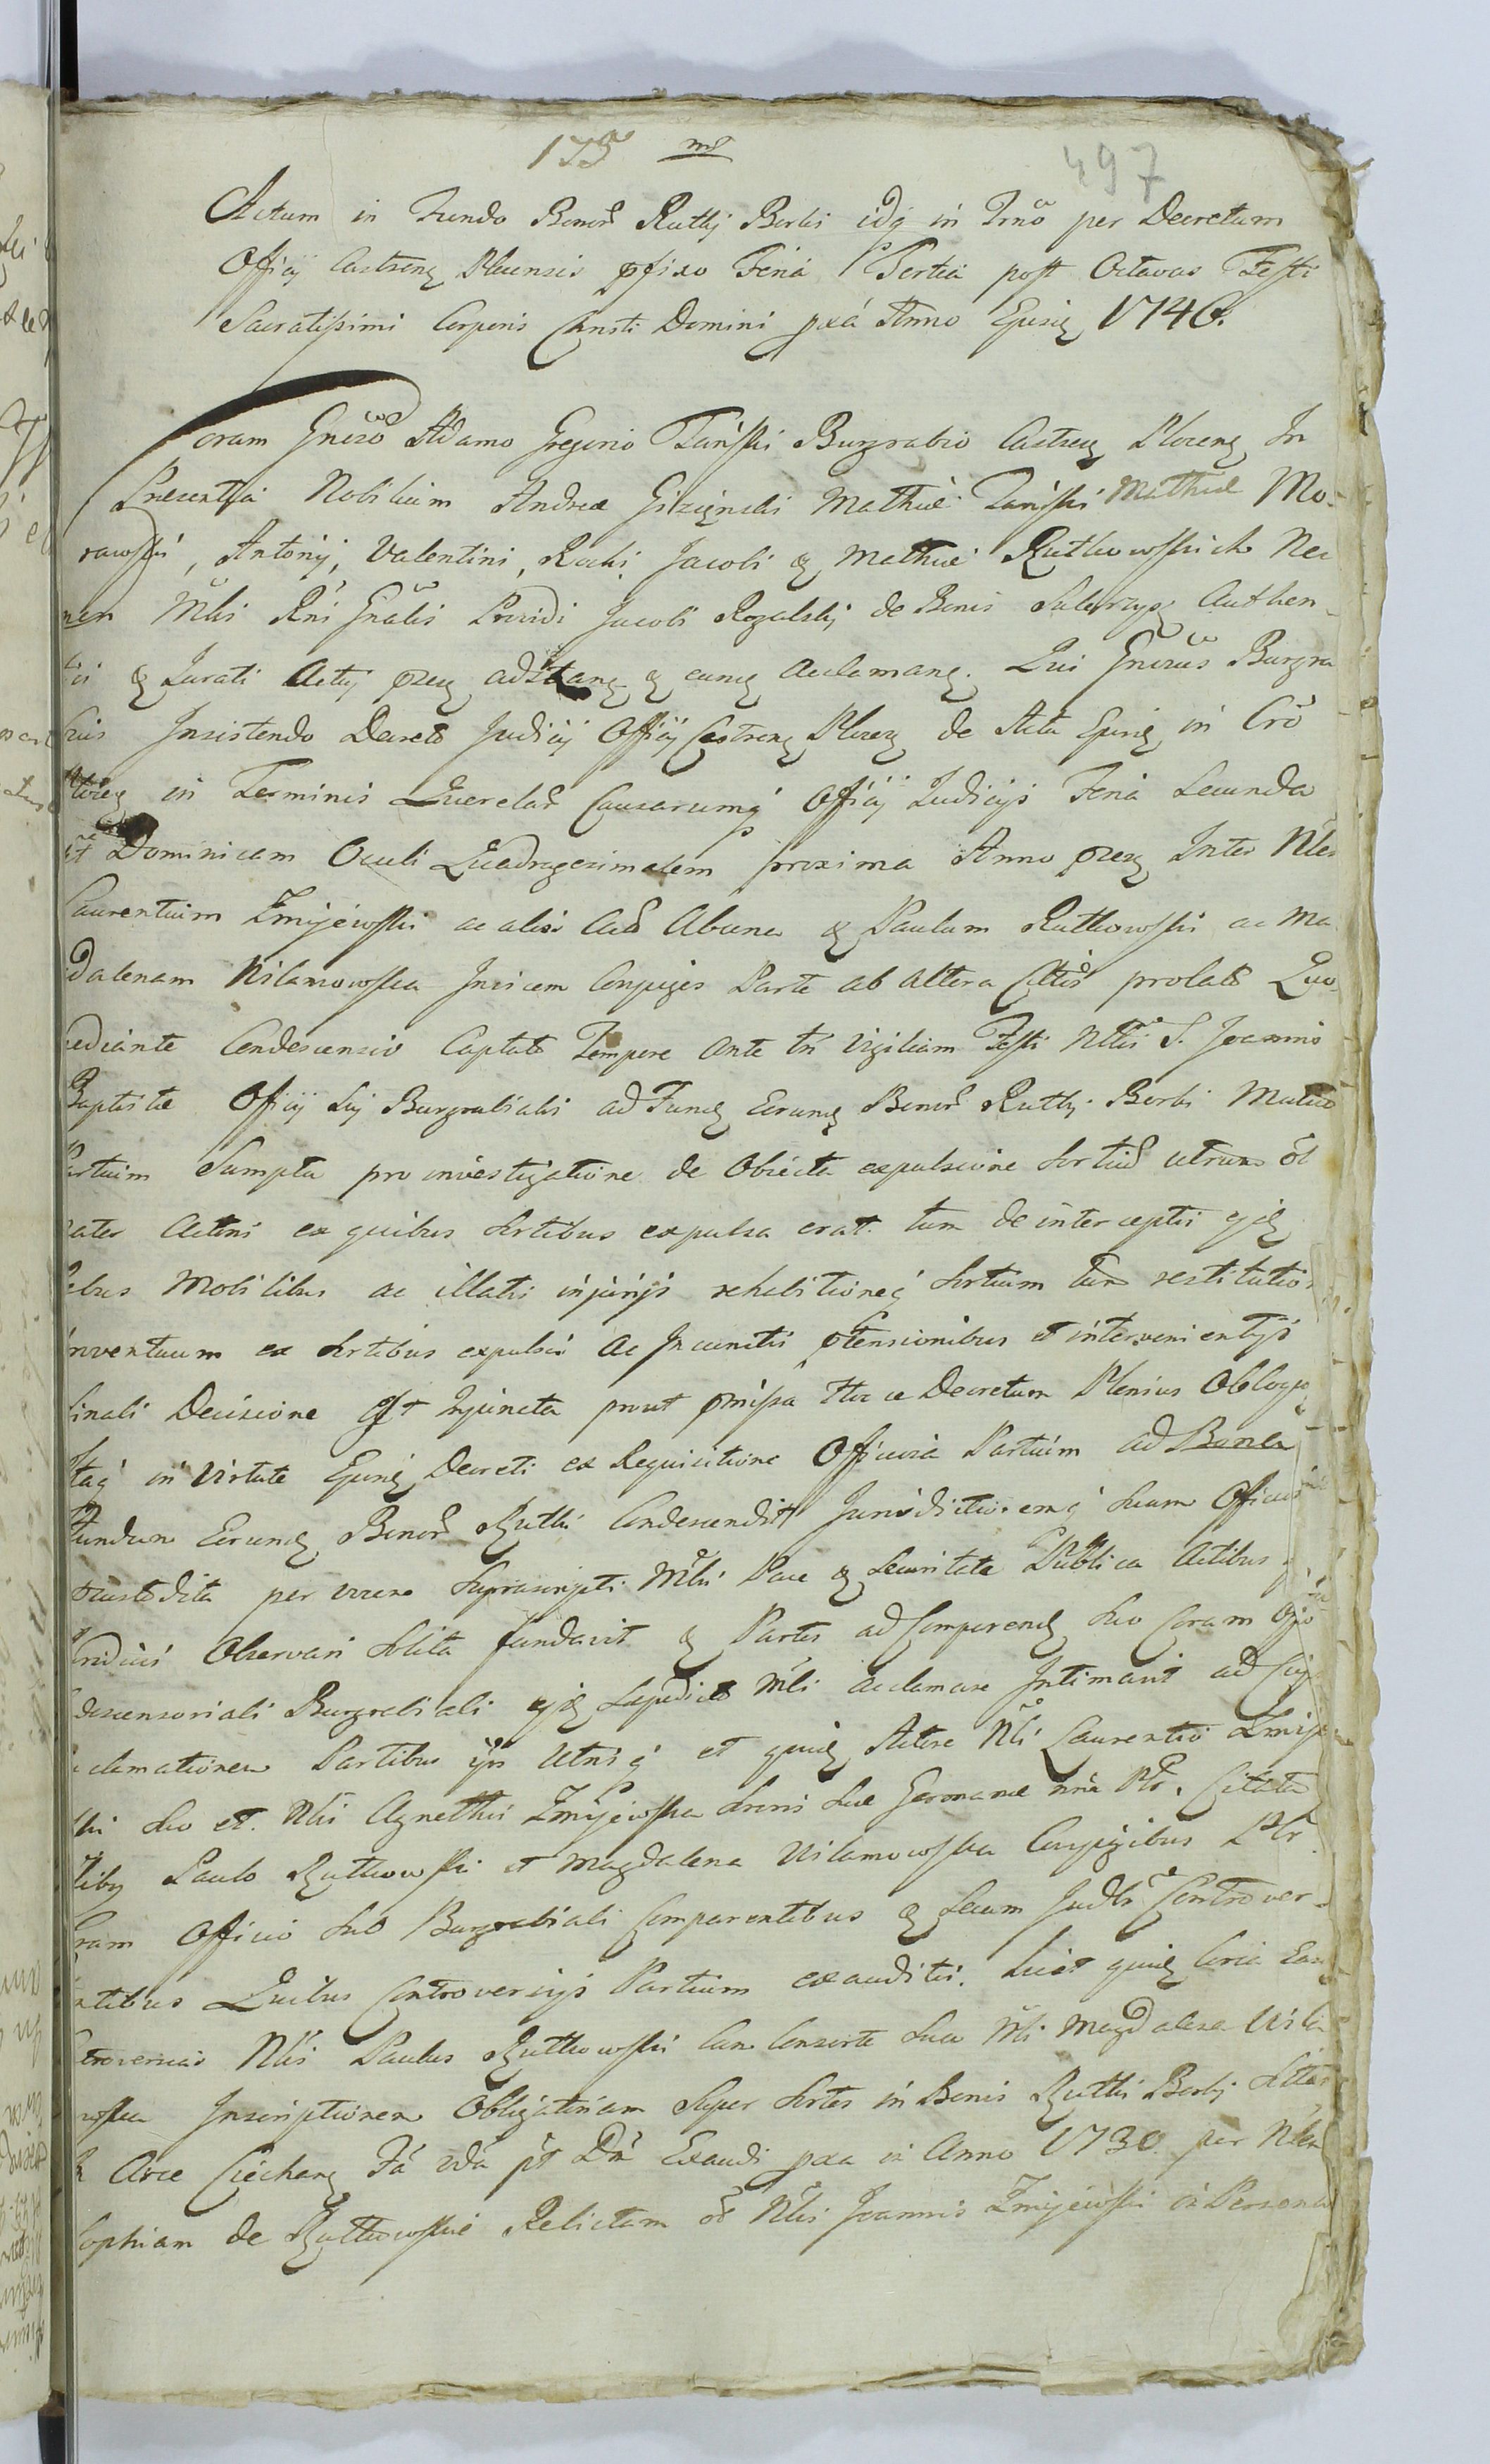 175 m
497
Actum in Fundo Bonor Rutky Borki idq in Trno per Decretum
Officij Castren Plocensis pfixo Feria Tertia post Octavas Festi
Sacratissimi Corporis Christi Domini pxa Anno Ejusq 1746.
Coram Gnroso Adamo Gregorio Tański Burgrabio Castren Plocen In
Presentia Nobilium Andreæ Giżiynski Mathiæ Tański Mathiæ Mo-
rawski, Antonij, Valentini, Rochi Jacobi & Mathiæ Rutkowskich Nec
non Mlis Rni Gnalis Providi Jacobi Rogalski de Bonis Authen-
tici & Jurati Actus pzen adstan & eund acclaman. Qui Gnrosus Burgra
bius Insistendo Decreto Judicij Officij Castren Plocen de Acta Ejusd in Cro
Plocen in Terminis Querelar Causarumq Officij Judicijs Feria Secunda
pt Dominicam Oculi Quadragesimalem proxima Anno pzen Inter Nles
Laurentium Zmijewski ac alios Act Ab una & Paulum Rutkowski ac Ma
gdalenam Nilamowska Invicem Conjuges Parte ab altera Cittos prolato Quo
mediante Condescensio Captato Tempore Ante tri Vigiliam Festi Nttis S. Joannis
Baptistæ Officij Sui Burgrabialis ad Fund Eorund Bonor Rutky Borki Mutuo
Partium Sumptu pro investigatione de Objecta expulsione Sortium utrum ol
mater Actoris ex quibus Sortibus expulsa erat tum de interceptis
Rebus Mobilibus ac illatis injurijs rehabitioneq Sortium tum restitutio
inventuum ex Sortibus expulsis ac Incunctis ptensionibus et intervenientijs
finali Decisione Est Injuncta prout pmissa Hocce Decretum Plenius Obloq
Itaq in Virtute Ejund Decreti ex Requisitione Officiosa Partium ad Bona
Fundum Eorund Bonor Rutki Condescendit Jurisdictionemq Suam Officios
custodita per vocem Suprascripti Mlis Pace & Securitate Publica Actibus
Judicis Observari Solita fundavit & Partes ad Comparend Suo Coram Offo
descensoriali Burgrabiali Supradicto Mli acclamare Intimavit ad
acclamationem Partibus ijs Utrisq et quid Actore Nli Laurentio Zmije
ski Suo et Nlis Agnethis Zmijewska Sororis Suæ Germanæ nne Plr. Citatis
tibus Paulo Rutkowski et Magdalena Nilamowska Conjugibus Plr
Coram Officio Suo Burgrabiali Comparentibus & Secum Judlr Controver-
ntibus Quibus Controversijs Partium exauditis. Licet quid Circa Eas
troversias Nlis Paulus Rutkowski Cum Consorte Sua Nli Magdalena Nila
wska Inscriptionem Obligatoriam Super Sortes in Bonis Rutki Borki Sitas
In Arce Ciechan Fa 2da pt Dm Exaudi pxa in Anno 1730 per Nlem
Sophiam de Rutkowskie Relictam ol Nlis Joannis Zmijewski in Persona